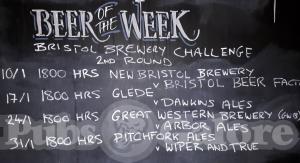 BEER OF THE WEEK
BRISTOL BREWERY CHALLENGE
2ND ROUND
10/1 1800 HRS NEW BRISTOL BREWERY
v BRISTOL BEER FACT
17/1 1800 HRS GLEDE
v DAWKINS ALES
24/1 1800 HRS GREAT WESTERN BREWERY (GWB)
v ARBOR ALES
31/1 1800 HRS PITCHFORK ALES
v WIPER AND TRUE